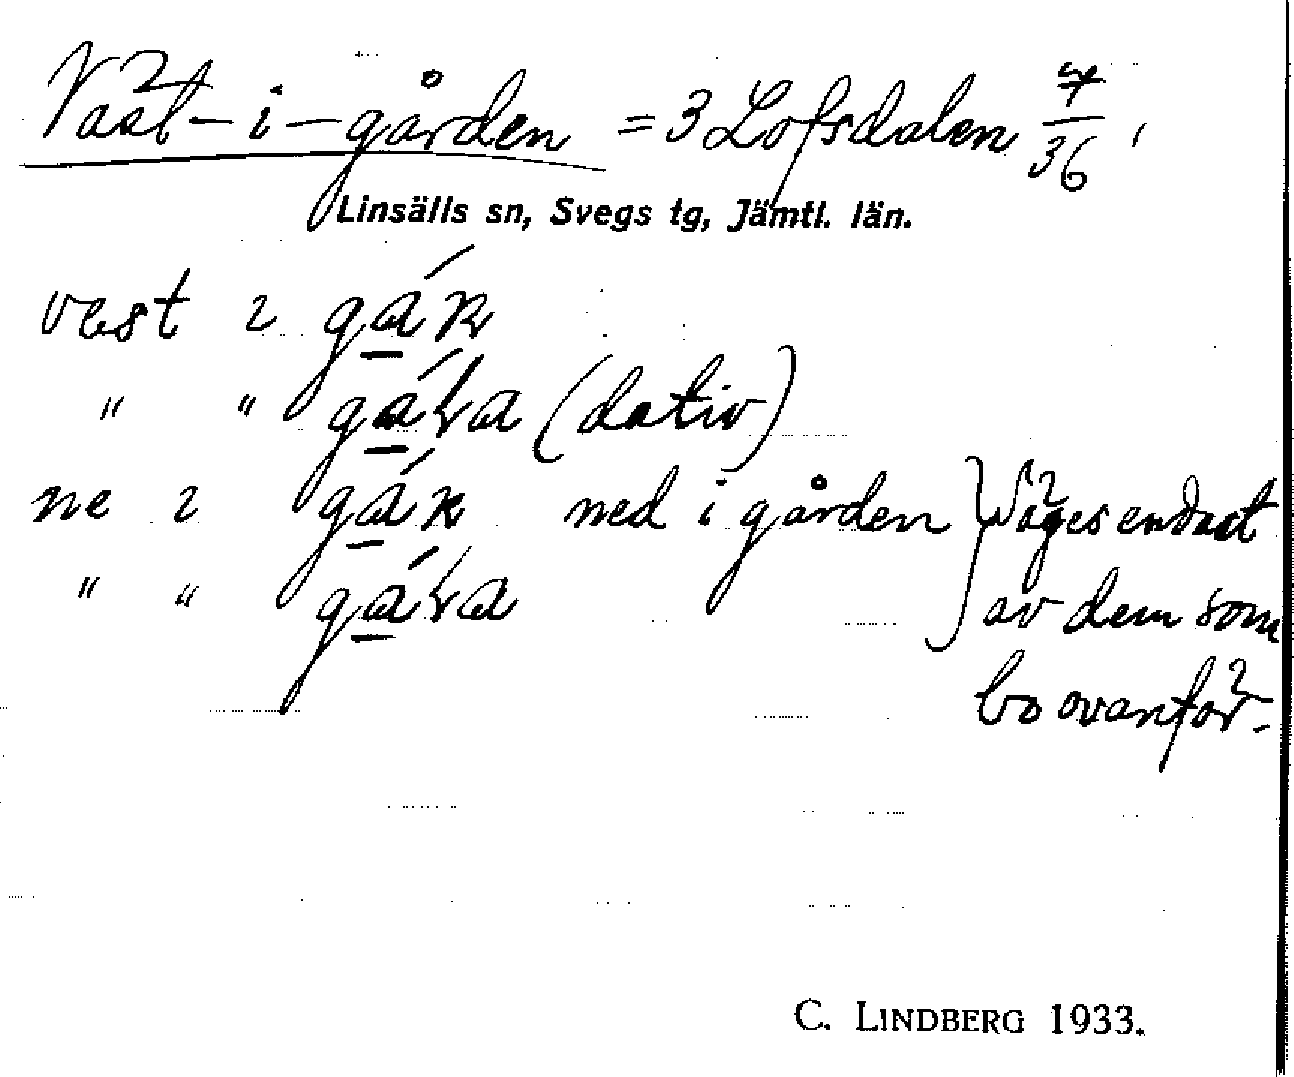 Väst-i-gården = 3 Lofsdalen 7/36,
Linsälls sn, Svegs tg, Jämtl. län.
vest ɩ
" " (dativ)
ne ɩ ned i gården } Säges endast
" " av dem som
bo ovanför.
C. LINDBERG 1933.